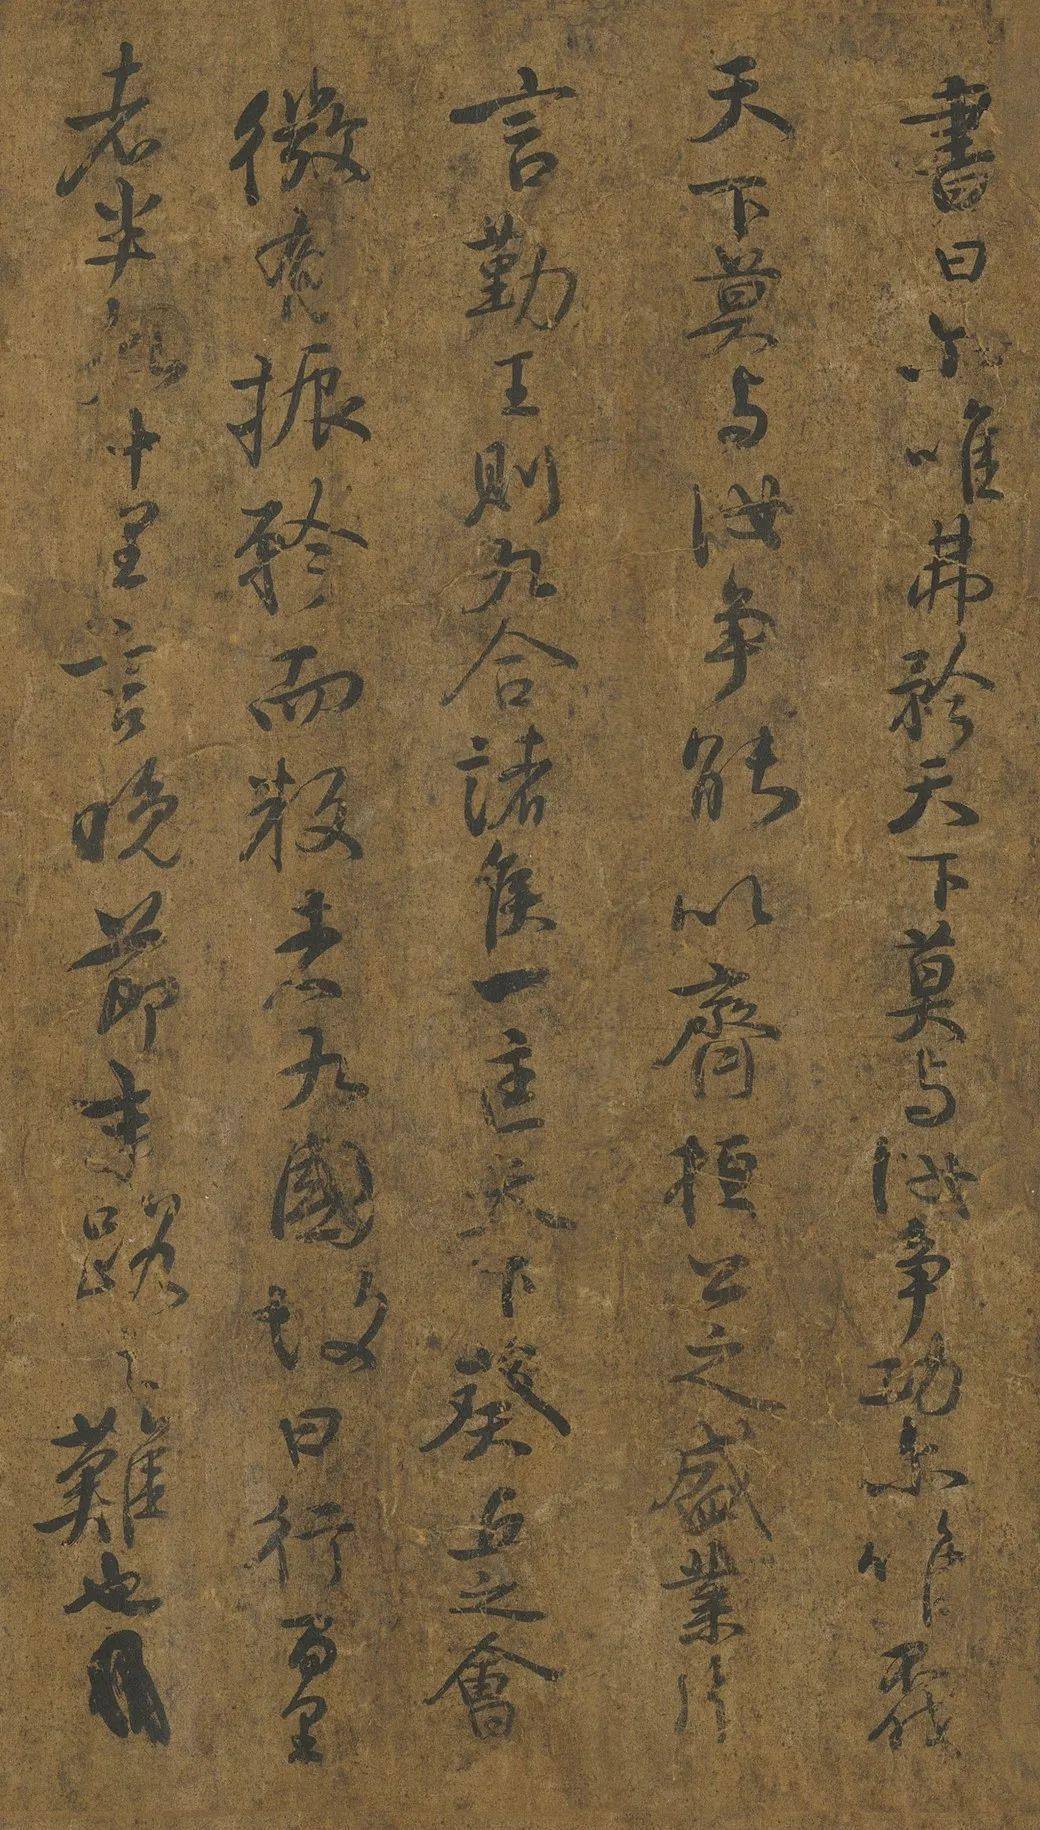 書曰尔唯弗矜天下莫与汝争功尔唯不伐
天下莫与汝争能以齊桓公之盛業片
言勤王則九合諸侯一匡天下葵丘之會
微有振矜而叛者九國故曰行百里
者半九十里言晚節末路之難也